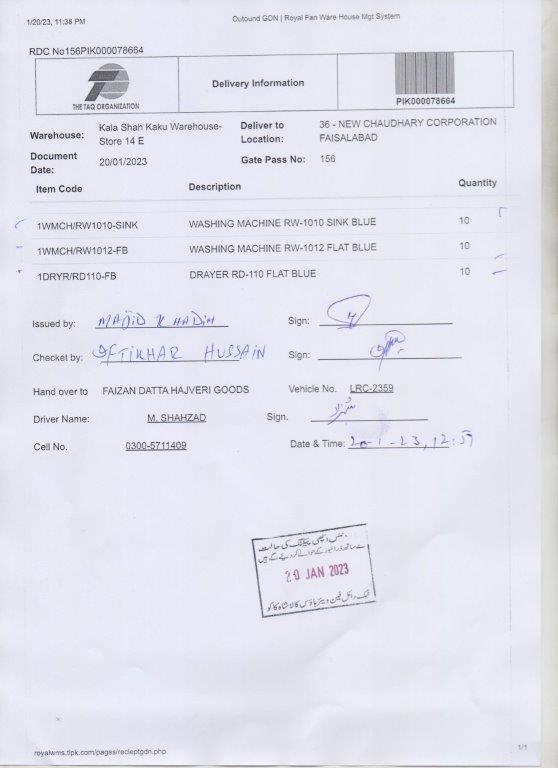 1/20/23, 11:38 PM Outound GDN | Royal Fan Ware House Mgt System
RDC No156PIK000078664
THE TAQ ORGANIZATION
Delivery Information
PIK000078664
Warehouse: Kala Shah Kaku Warehouse-Store 14 E
Deliver to Location: 36 - NEW CHAUDHARY CORPORATION FAISALABAD
Document Date: 20/01/2023
Gate Pass No: 156
Item Code Description Quantity
1WMCH/RW1010-SINK WASHING MACHINE RW-1010 SINK BLUE 10
1WMCH/RW1012-FB WASHING MACHINE RW-1012 FLAT BLUE 10
1DRYR/RD110-FB DRAYER RD-110 FLAT BLUE 10
Issued by: MAJID KHADIM Sign:
Checket by: IFTIKHAR HUSSAIN Sign:
Hand over to FAIZAN DATTA HAJVERI GOODS Vehicle No. LRC-2359
Driver Name: M. SHAHZAD Sign. شہزاد
Cell No. 0300-5711409 Date & Time: 20-1-23, 12:59
اچھی پیکنگ کی حالت
کے ساتھ ڈرائیور کے حوالے کر دیئے گئے ہیں
20 JAN 2023
رائل فین ویئر ہاؤس کالا شاہ کاکو
royalwms.tlpk.com/pages/recieptgdn.php 1/1